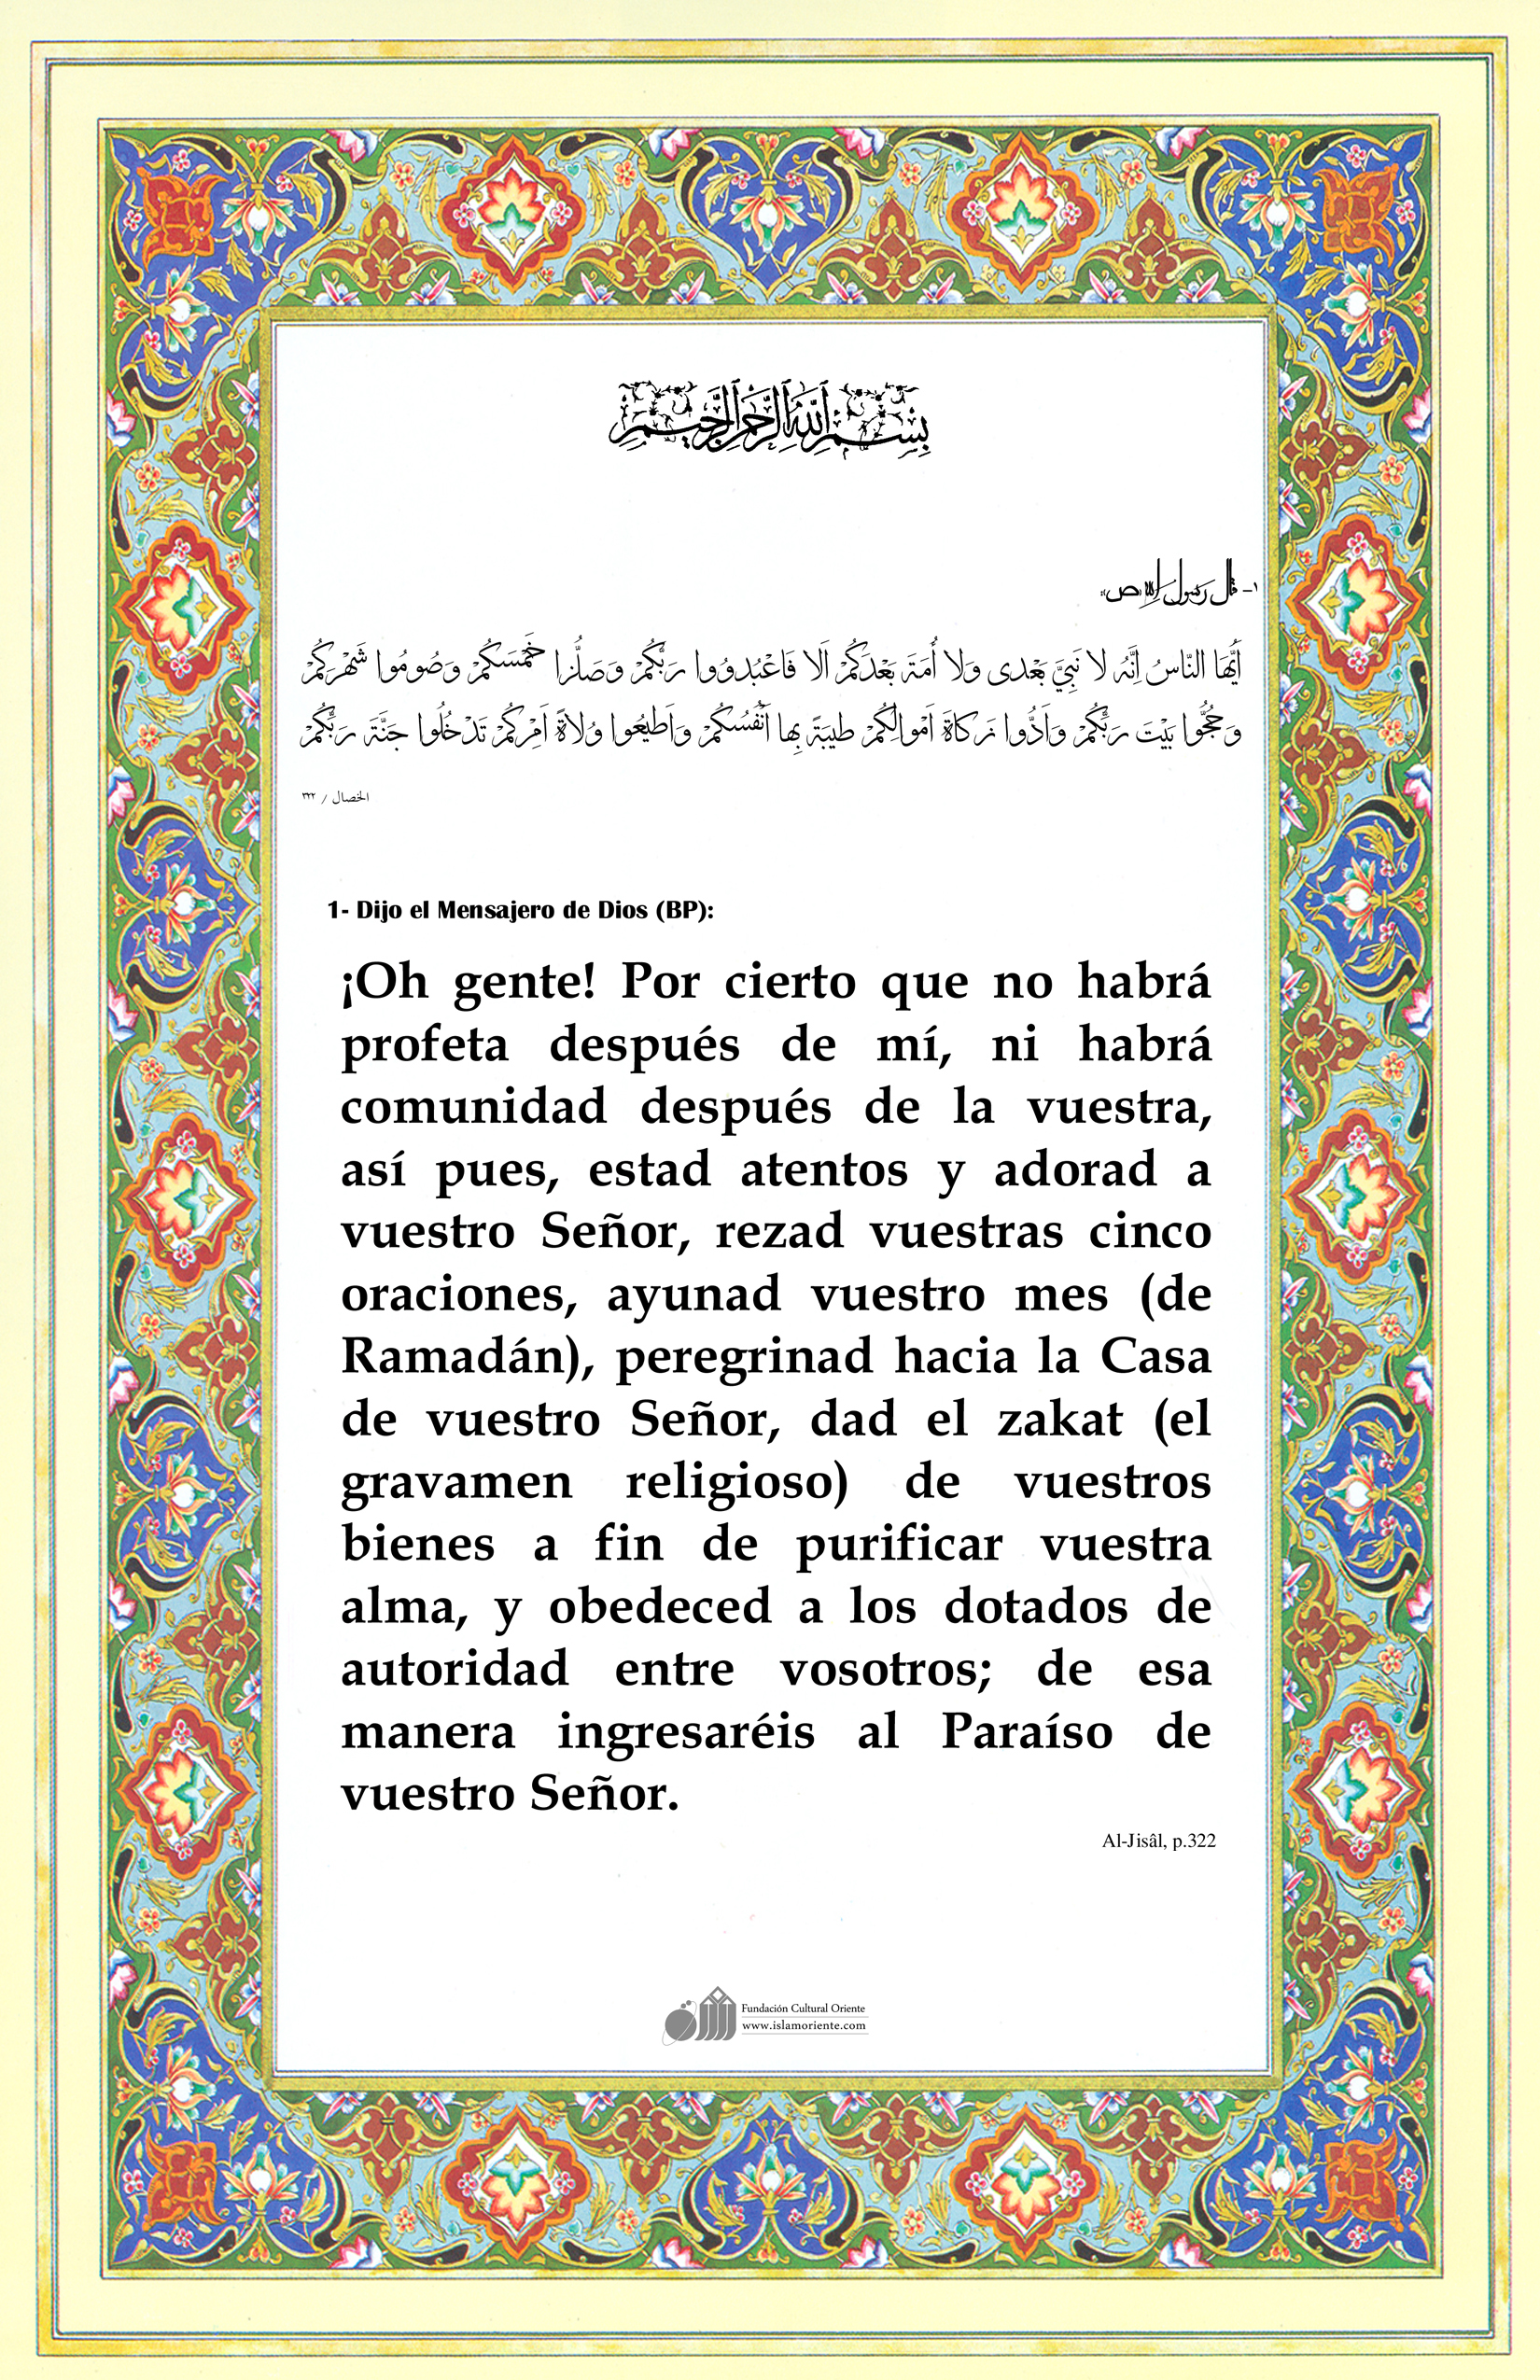 بِسْمِ اللَّهِ الرَّحْمَنِ الرَّحِيمِ
١- قال رسول الله «ص»:
اَيُّهَا النّاسُ اِنَّهُ لا نَبِيَّ بَعْدى وَلا اُمَةَ بَعْدَكُمْ اَلا فَاعْبُدوُوا رَبَّكُمْ وَصَلُّزا خَمْسَكُمْ وَصُومُوا شَهْرَكُمْ
وَحُجُّوا بَيْتَ رَبِّكُمْ وَاَدُّوا زَكاةَ اَمْوالِكُمْ طيبَةً بِها اَنْفُسُكُمْ وَاَطيعُوا وُلاةَ اَمْرِكُمْ تَدْخُلُوا جَنَّةَ رَبِّكُمْ
الخصال / ٣٢٢
1- Dijo el Mensajero de Dios (BP):
¡Oh gente! Por cierto que no habrá
profeta después de mí, ni habrá
comunidad después de la vuestra,
así pues, estad atentos y adorad a
vuestro Señor, rezad vuestras cinco
oraciones, ayunad vuestro mes (de
Ramadán), peregrinad hacia la Casa
de vuestro Señor, dad el zakat (el
gravamen religioso) de vuestros
bienes a fin de purificar vuestra
alma, y obedeced a los dotados de
autoridad entre vosotros; de esa
manera ingresaréis al Paraíso de
vuestro Señor.
Al-Jisâl, p.322
Fundación Cultural Oriente
www.islamoriente.com